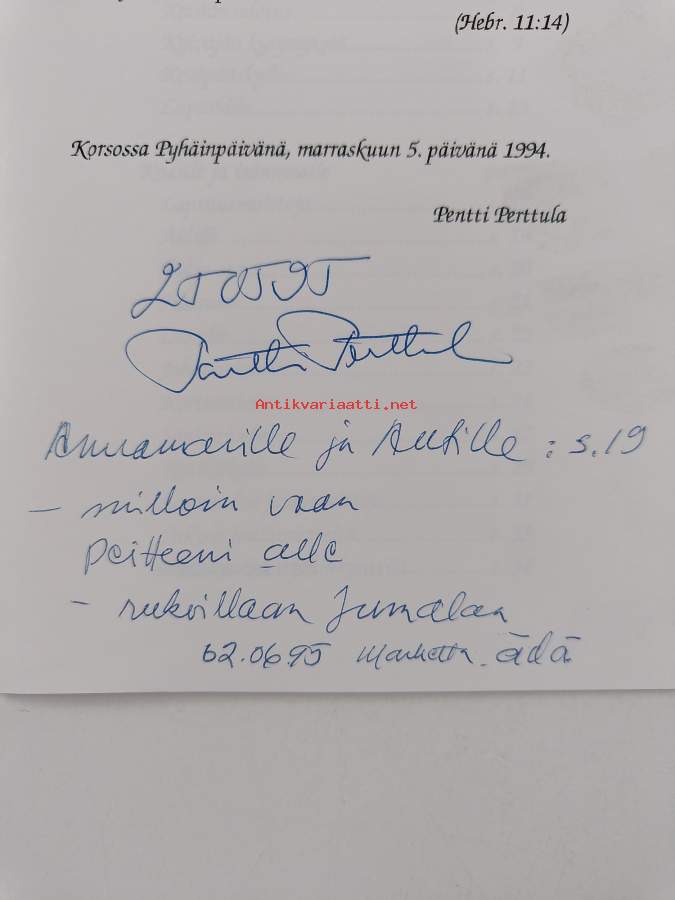 (Hebr. 11:14)
Korsossa Pyhäinpäivänä, marraskuun 5. päivänä 1994.
Pentti Perttula
Pentti Perttula
Antikvariaatti.net
Annamarille ja Antille : s.19
- milloin vaan
peitteeni alle
- rukoillaan Jumalaa
02.06.95 Marketta